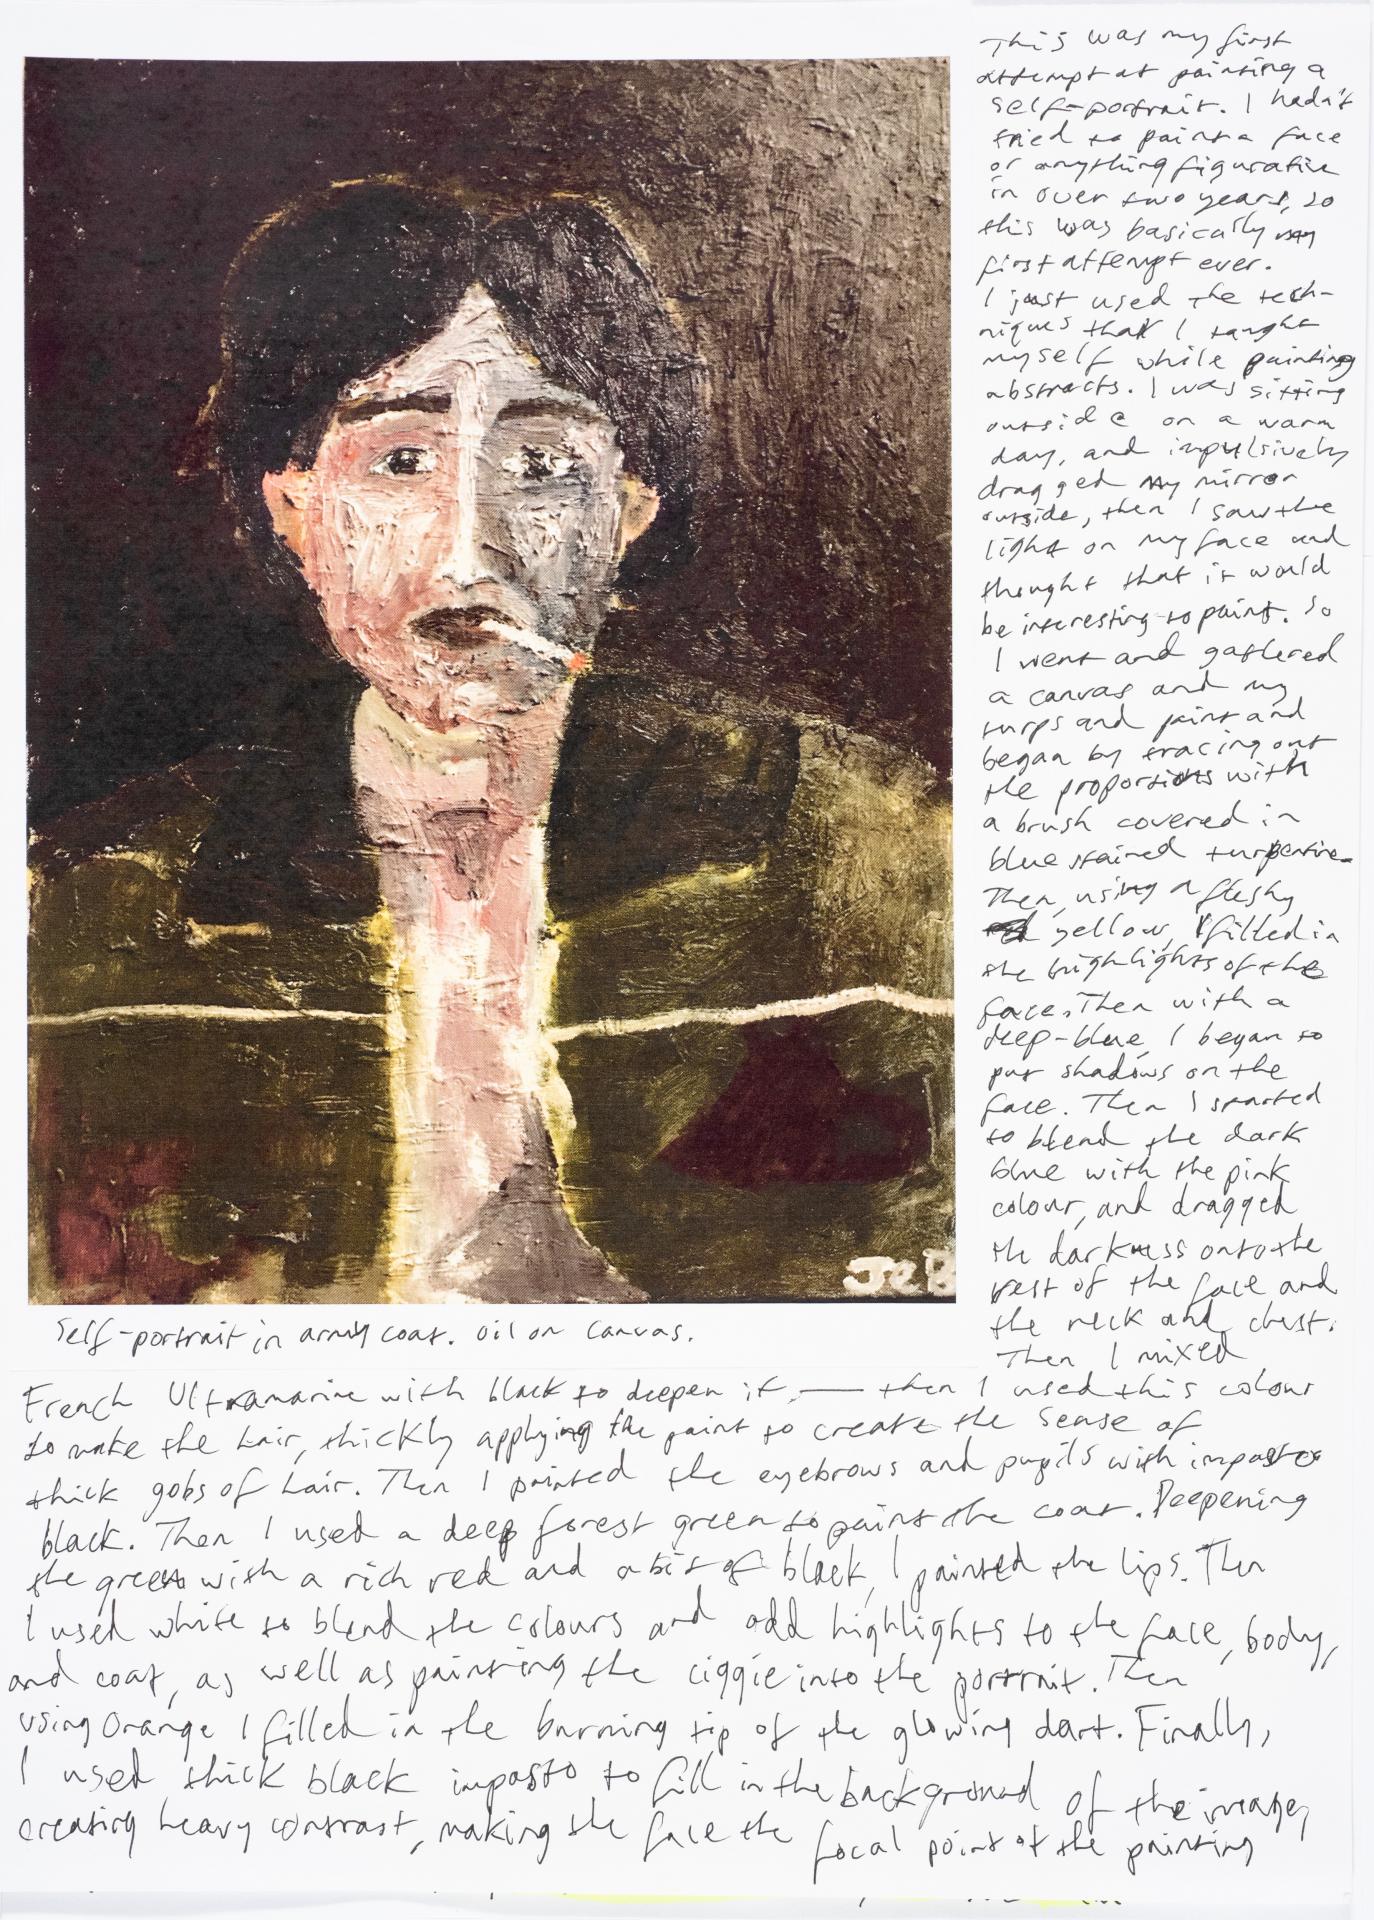 This was my first
attempt at painting a
self-portrait. I hadn't
tried to paint a face
or anything figurative
in over two years, so
this was basically my
first attempt ever.
I just used the tech-
niques that I taught
myself while painting
abstracts. I was sitting
outside on a warm
day, and impulsively
dragged my mirror
outside, then I saw the
light on my face and
thought that it would
be interesting to paint. So
I went and gathered
a canvas and my
turps and paint and
began by tracing out
the proportions with
a brush covered in
blue stained turpentine.
Then, using a fleshy
yellow, I filled in
the highlights of the
face. Then with a
deep-blue, I began to
put shadows on the
face. Then I started
to blend the dark
blue with the pink
colour, and dragged
the darkness onto the
rest of the face and
the neck and chest.
Then I mixed
JCB
Self-portrait in army coat. oil on canvas.
French Ultramarine with black to deepen it, — then I used this colour
to make the hair, thickly applying the paint to create the sense of
thick gobs of hair. Then I painted the eyebrows and pupils with impasto
black. Then I used a deep forest green to paint the coat. Deepening
the green with a rich red and a bit of black, I painted the lips. Then
I used white to blend the colours and add highlights to the face, body,
and coat, as well as painting the ciggie into the portrait. Then
using Orange I filled in the burning tip of the glowing dart. Finally,
I used thick black impasto to fill in the background of the image,
creating heavy contrast, making the face the focal point of the painting